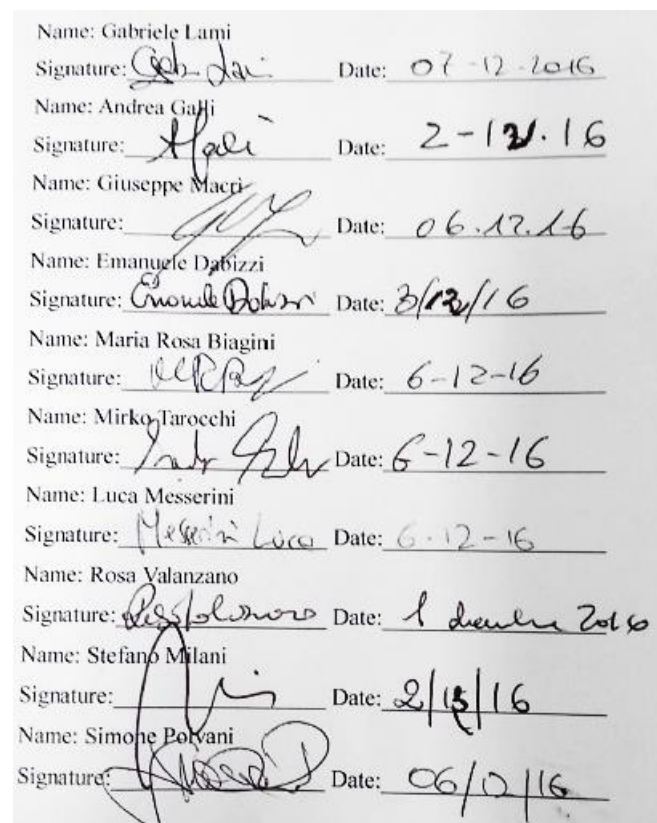 Name: Gabriele Lami
Signature: Date: 07-12-2016
Name: Andrea Galli
Signature: A Galli Date: 2-12.16
Name: Giuseppe Macri
Signature: Date: 06.12.16
Name: Emanuele Dabizzi
Signature: Emanuele Dabizzi Date: 3/12/16
Name: Maria Rosa Biagini
Signature: Date: 6-12-16
Name: Mirko Tarocchi
Signature: Date: 6-12-16
Name: Luca Messerini
Signature: Messerini Luca Date: 6-12-16
Name: Rosa Valanzano
Signature: Date: 1 dicembre 2016
Name: Stefano Milani
Signature: Date: 2/12/16
Name: Simone Polvani
Signature: Date: 06/12/16